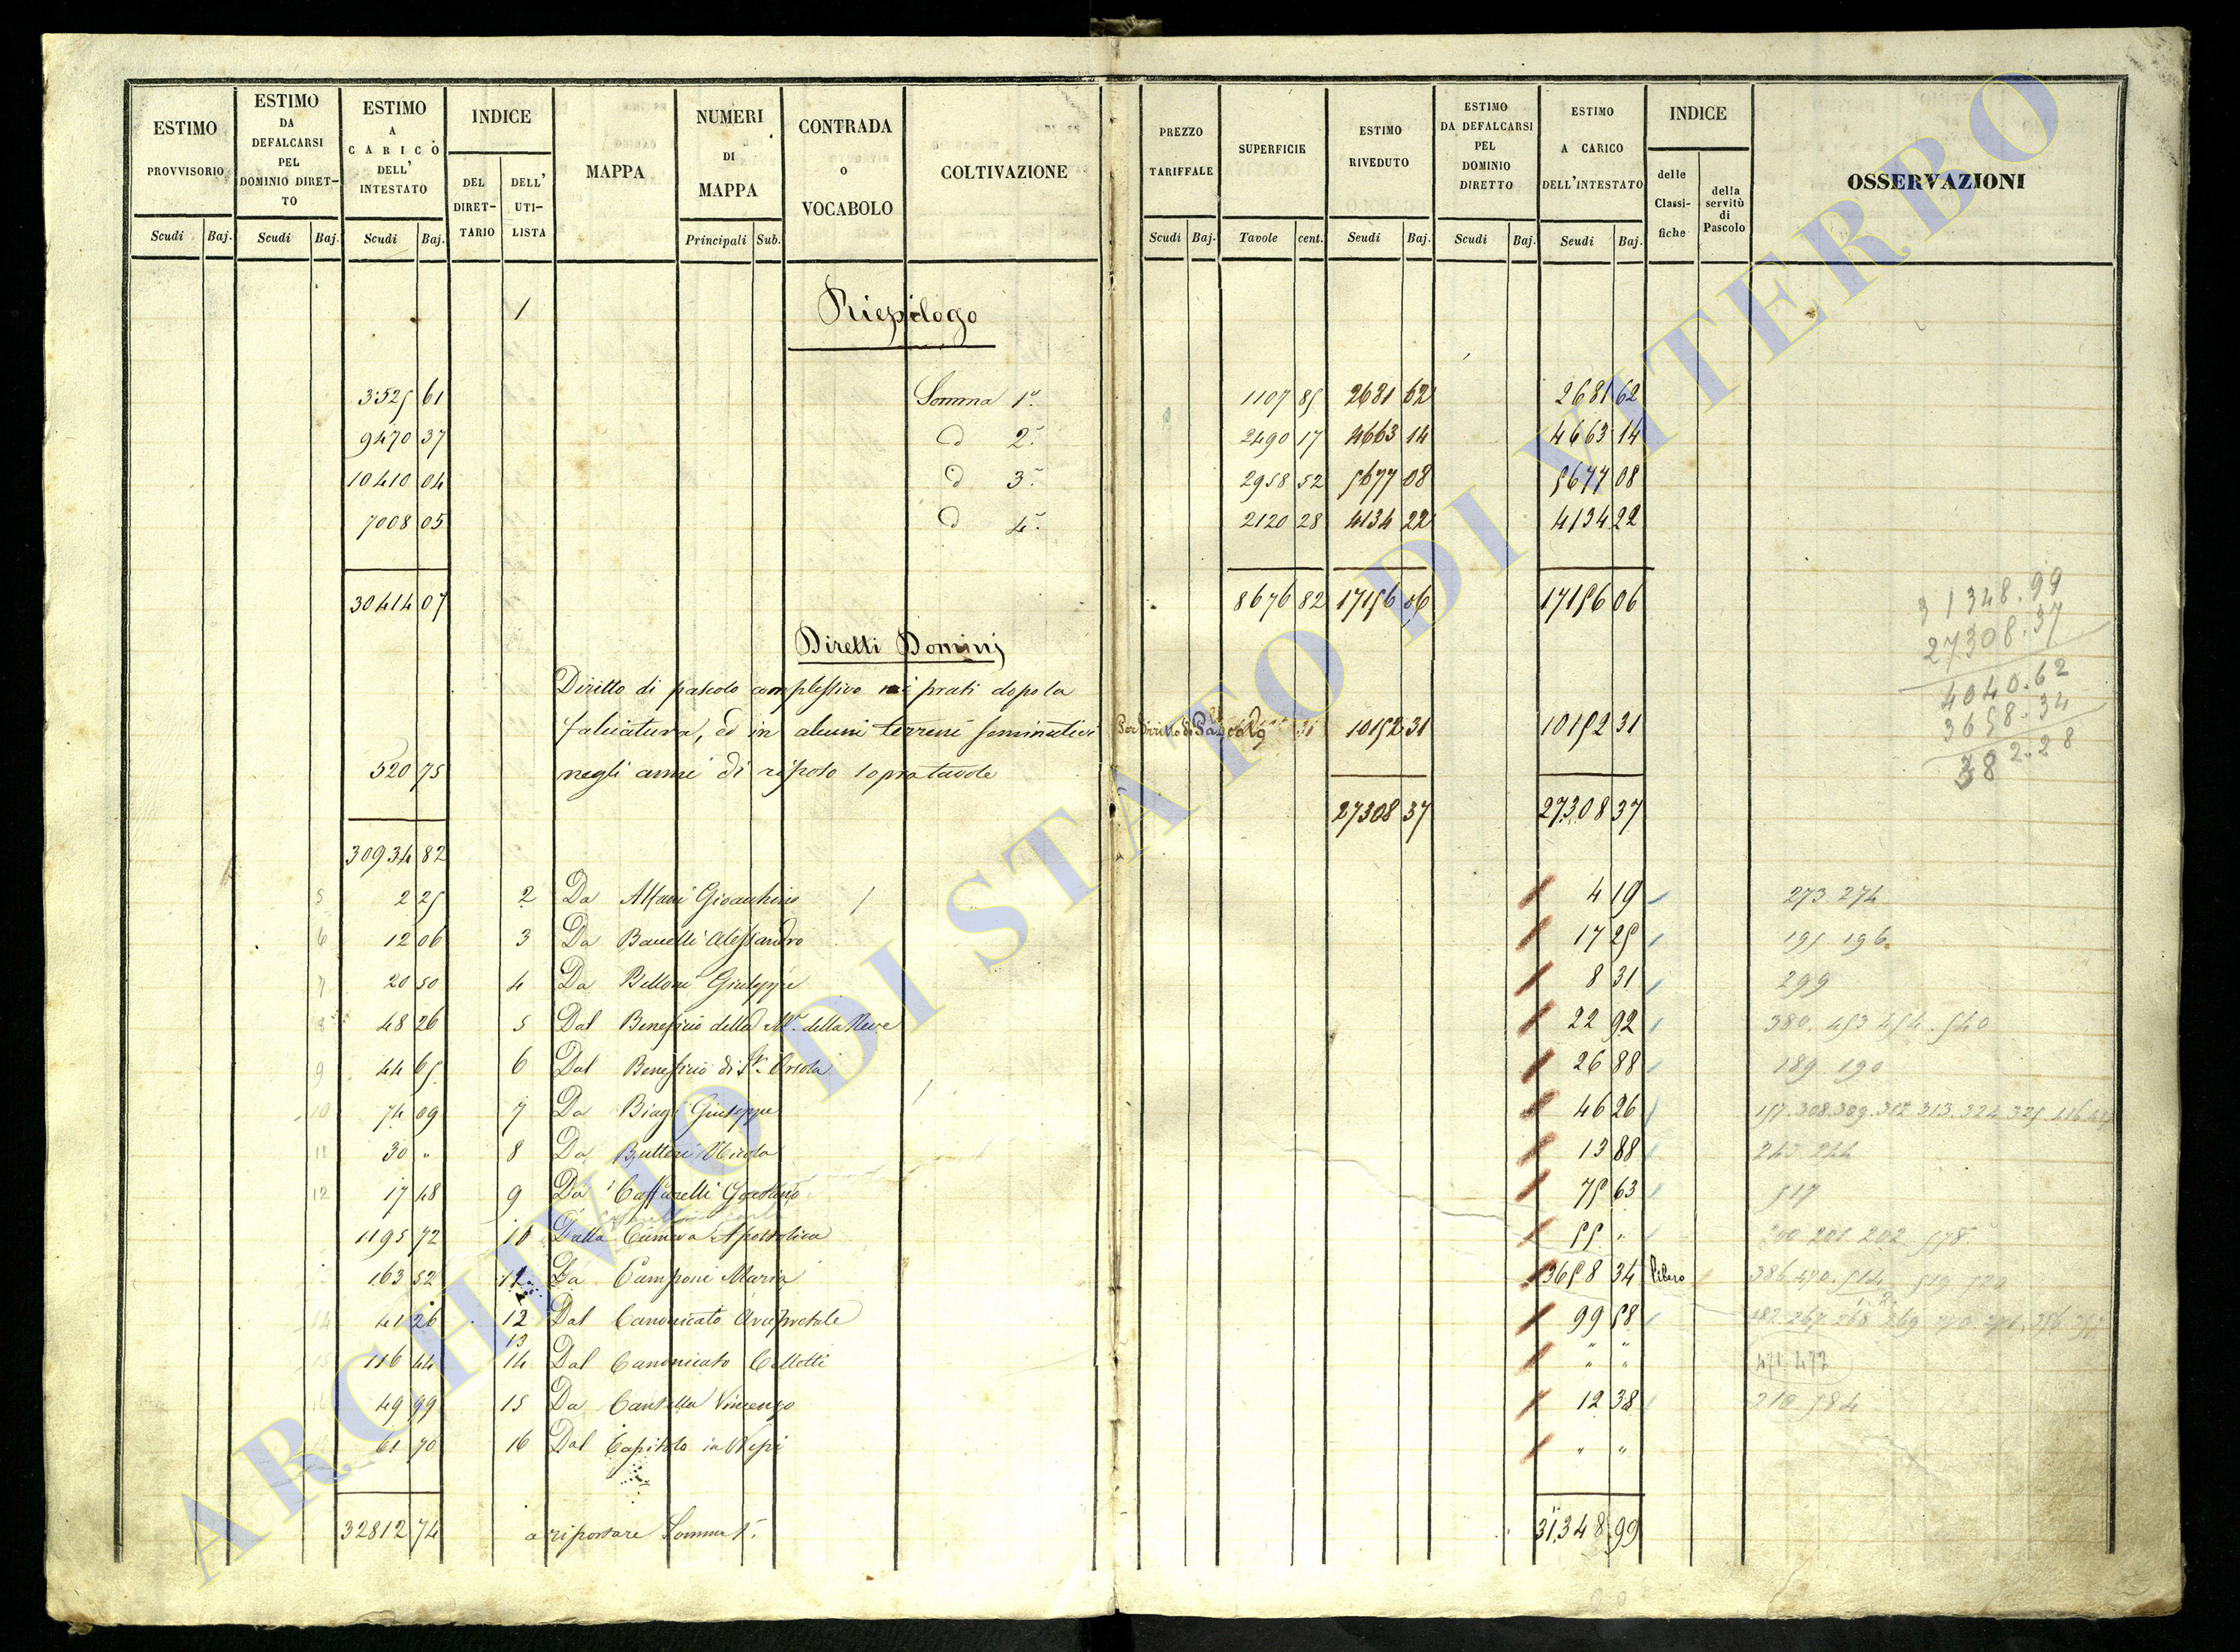 ESTIMO PROVVISORIO
ESTIMO DA DEFALCARSI PEL DOMINIO DIRET- TO
ESTIMO A CARICO DELL' INTESTATO
INDICE
DEL DIRET- TARIO
DELL' UTI- LISTA
MAPPA
NUMERI DI MAPPA
CONTRADA O VOCABOLO
COLTIVAZIONE
PREZZO TARIFFALE
SUPERFICIE
ESTIMO RIVEDUTO
ESTIMO DA DEFALCARSI PEL DOMINIO DIRETTO
ESTIMO A CARICO DELL'INTESTATO
INDICE
delle Classi- fiche
della servitù di Pascolo
OSSERVAZIONI
Scudi Baj. Scudi Baj. Scudi Baj. Principali Sub. Scudi Baj. Tavole cent. Scudi Baj. Scudi Baj. Scudi Baj.
1 Riepilogo
3525 61 Somma 1a. 1107 85 2681 62 2681 62
9470 37 d 2a. 2490 17 4663 14 4663 14
10410 04 d 3a. 2958 52 5677 08 5677 08
7008 05 d 4a. 2120 28 4134 22 4134 22
30414 07 8676 82 17156 06 17156 06
31348.99
27308.37
4040.62
3658.34
382.28
Diretti Dominj
Diritto di pascolo complessivo nei prati dopo la
falciatura, ed in alcuni terreni seminativi Per diritto di Pascolo 10152 31 10152 31
520 75 negli anni di riposo sopra tavole
27308 37 27308 37
30934 82
5 2 25 2 Da Alfani Gioacchino 4 19 273 274
6 12 06 3 Da Banelli Alessandro 17 25 195 196
7 20 50 4 Da Belloni Giuseppe 8 31 299
8 48 26 5 Dal Beneficio della Ma. della Neve 22 92 380. 453 454. 540
9 44 65 6 Dal Beneficio di Sa. Orsola 26 88 189 190
10 74 09 7 Da Biagi Giuseppe 46 26 157.308.309.312 313.324 325
11 30 " 8 Da Butteri Nicola 13 88 243 244
12 17 48 9 Da Caffarelli Gaetano 75 63 517
1195 72 10 Dalla Camera Apostolica 55 " 200 201 202 578
163 52 Da Camponi Maria 3658 34 libero 386.470.514
14 41 26 12 Dal Canonicato Arcipretale 99 58 182 267 268 269
13
116 44 14 Dal Canonicato Collotti " " 471.472
49 99 15 Da Cansella Vincenzo 12 38 210 584
61 70 16 Dal Capitolo in Nepi " "
32812 74 a riportare Somma 1a. 31348 99
ARCHIVIO DI STATO DI VITERBO